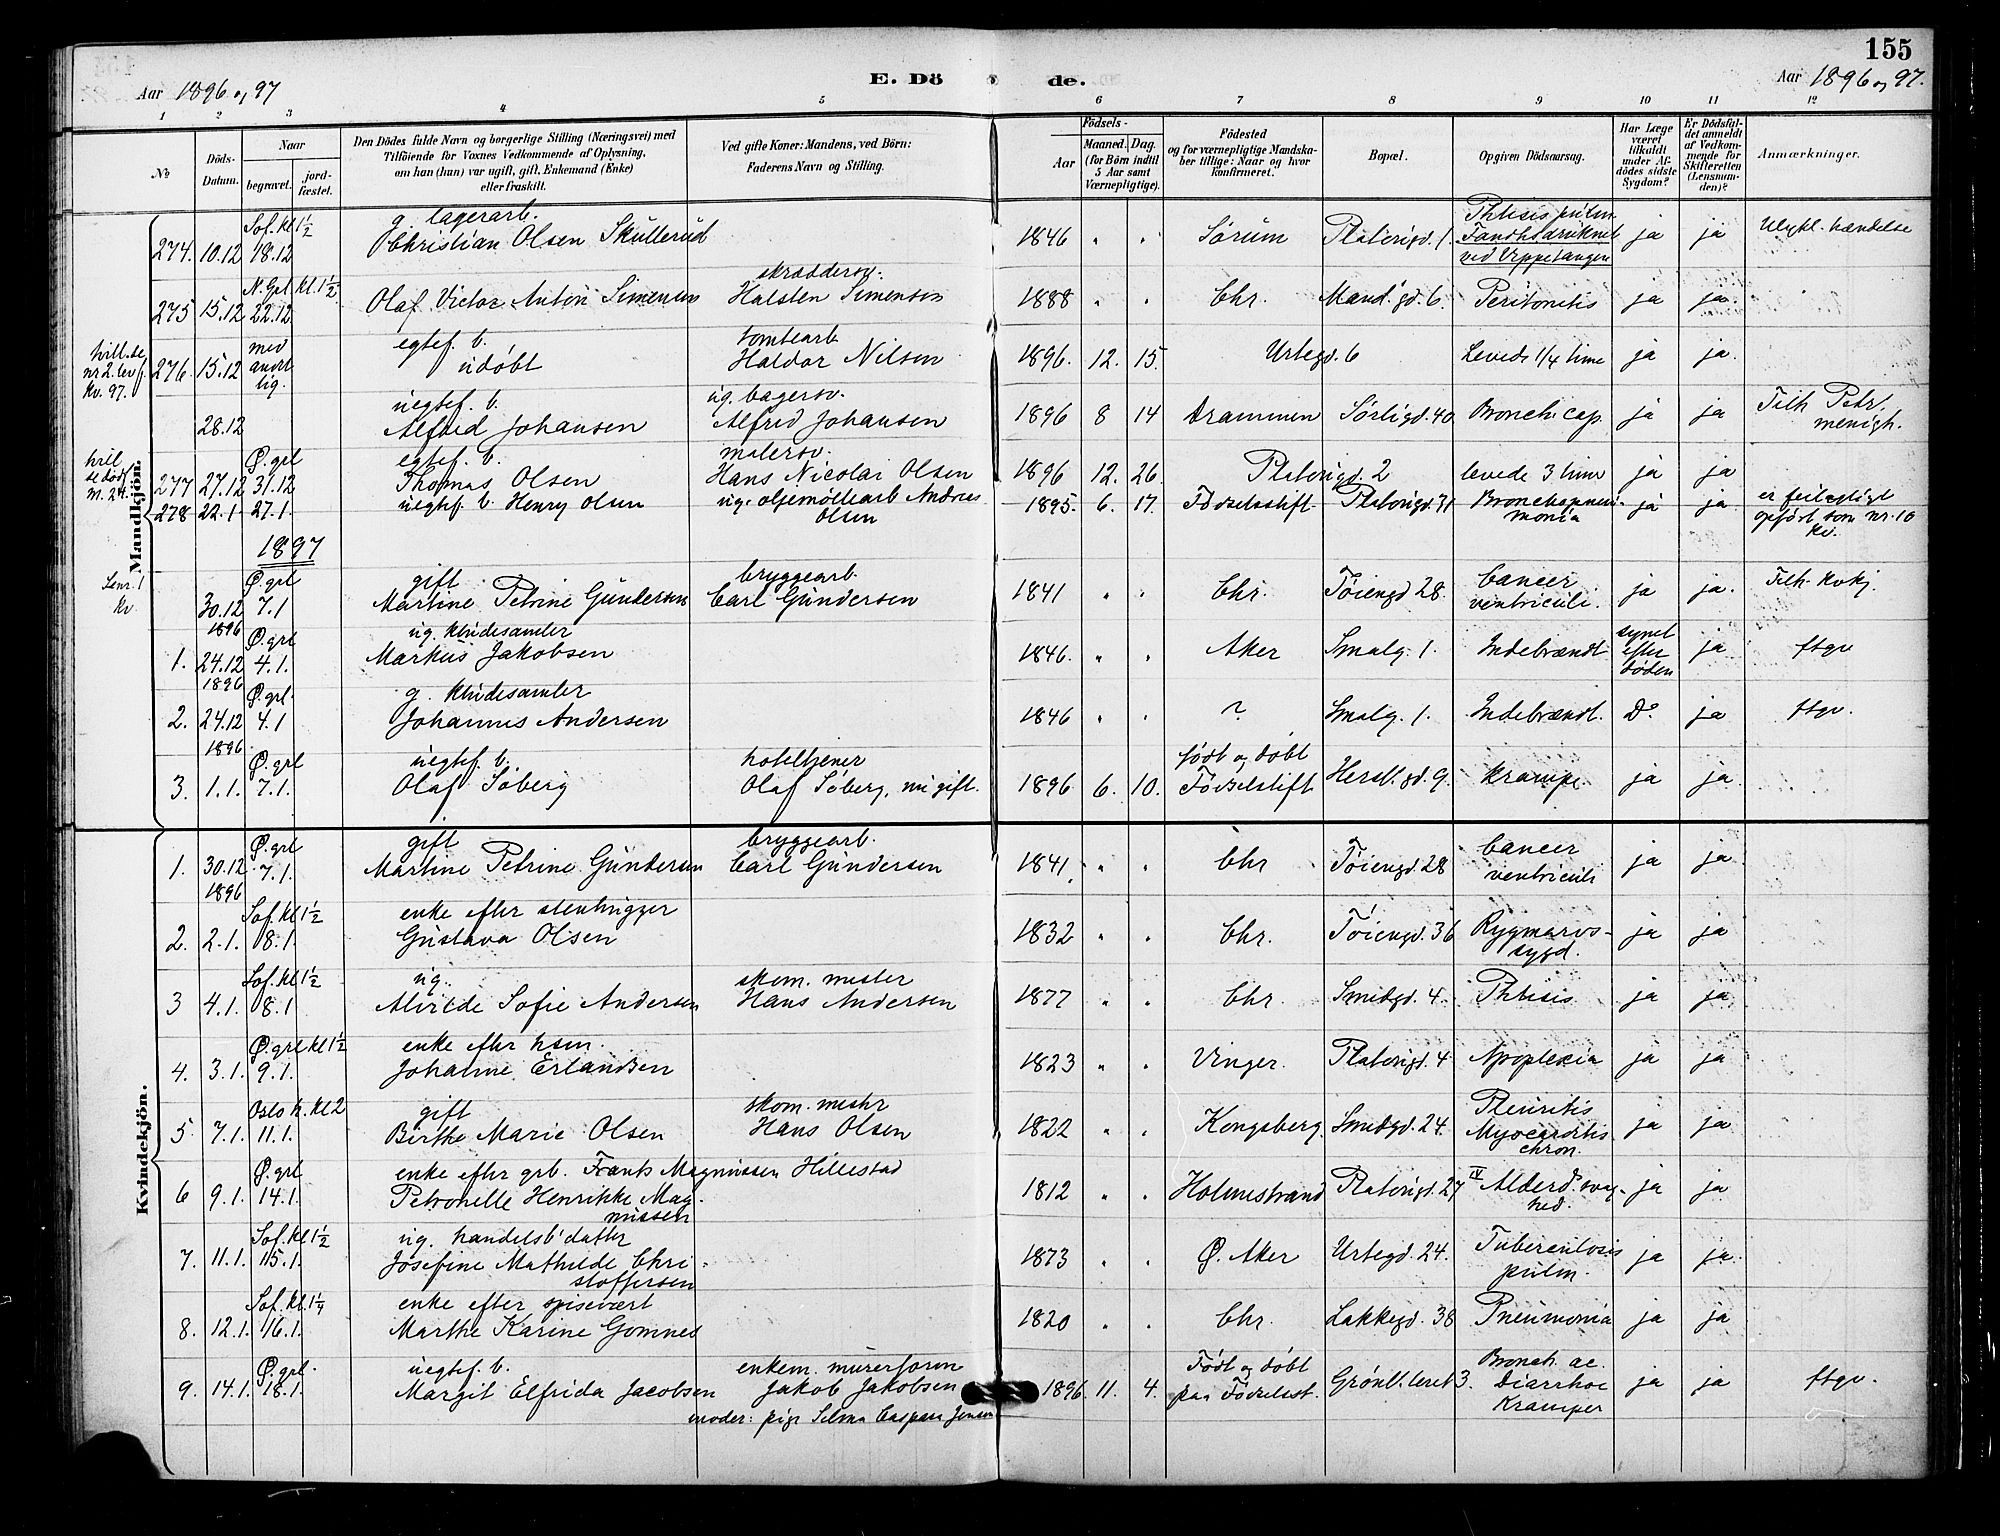 155
Aar 1896 og 97
E. Dö de.
Aar 1896 og 97.
1 2 3 4 5 6 7 8 9 10 11 12
No
Döds-Datum.
Naar
begravet.
jord-fæstet.
Den Dödes fulde Navn og borgerlige Stilling (Næringsvei) med
Tilföiende for Voxnes Vedkommende af Oplysning,
om han (hun) var ugift, gift, Enkemand (Enke)
eller fraskilt.
Ved gifte Koner: Mandens, ved Börn:
Faderens Navn og Stilling.
Födsels-
Aar
Maaned. Dag.
(for Börn indtil
5 Aar samt
Værnepligtige).
Födested
og for værnepligtige Mandska-
ber tillige: Naar og hvor
konfirmeret.
Bopæl.
Opgiven Dödsaarsag.
Har Læge
været
tilkaldt
under Af-
dödes sidste
Sygdom?
Er Dödsfal-
det anmeldt
af Vedkom-
mende for
Skifteretten
(Lensman-
den)?
Anmærkninger.
Mandkjön.
Sof. kl 1 1/2 g. lagerarb. Phtisis pulm.
274. 10.12 18.12 Christian Olsen Skullerud 1846 " " Sørum Platousgd. 1. ja ja Ulykl. hændelse
ved Vippetangen
N. Grl. kl. 1 1/2 skræddersv.
275 15.12 22.12 Olaf Victor Anton Simensen Halsten Simensen 1888 " " Chr. Mand. gd. 6 Peritonitis ja ja.
med egtef. b. tomtearb
276. 15.12 andt lig. udøbt Haldor Nilsen 1896. 12. 15. Urtegd. 6 Levede 1/4 time ja ja.
nr 2. lev f.
Kv. 97.
uegtef. b. ug. bagersv.
28.12 Alfred Johansen Alfred Johansen 1896 8 14 Drammen Sørligd. 40 Bronch. cap. ja ja Tilh. Petr. menigh.
Ø. grl egtef. b. malersv.
277 27.12 31.12 Thomas Olsen Hans Nicolai Olsen 1896 12. 26. Platousgd. 2 levede 3 timer ja ja
M. 24.
278 22.1. 27.1. uegtef. b. Henry Olsen ug. oljemøllearb Andreas Olsen 1895. 6. 17. Fødselsstift. Platousgd. 31 Bronchopneumonia ja ja. er feilagtigt
opført som nr. 10
kv.
1897
Ø. grl gift bryggearb.
Se nr. 1
kv
30.12 1896 7.1 Martine Petrine Gundersen Carl Gundersen 1841 " " Chr. Tøiengd 28. Cancer ventriculi. ja ja. Tilh. Kvkj.
Ø. grl ug. kludesamler
1. 24.12 1896 4.1. Markus Jakobsen 1846. " " Aker Smalg. 1. Indebrændt synet efter døden ja ftgv
Ø. grl. g. kludesamler
2. 24.12 1896 4.1 Johannes Andersen 1846 " " ? Smalg. 1. Indebrændt. Do ja ftgv.
Ø. grl uegtef. b. hoteltjener født og døbt
3. 1.1. 7.1. Olaf Søberg Olaf Søberg, nu gift. 1896 6. 10. Fødselstift Hersl. gd. 9. krampe. ja ja.
Kvindekjön.
Ø. grl gift bryggearb.
1. 30.12 1896 7.1. Martine Petrine Gundersen Carl Gundersen 1841. " " Chr Tøiengd 28 Cancer ventriculi ja ja.
Sof. kl 1 1/2 enke efter stenhugger
2. 2.1. 8.1. Gustava Olsen 1832 " " Chr. Tøiengd. 36 Rygmarvs-sygd. ja ja
Sof. kl 1 1/2 ug. skom. mester
3 4.1. 8.1 Alvilde Sofie Andersen Hans Andersen 1877 " " Chr. Smedgd. 4. Phtisis ja ja.
Ø. grl kl 1 1/2 enke efter hsm.
4. 3.1. 9.1. Johanne Erlandsen 1823 " " Vinger. Platousgd. 4 Apoplexia ja ja
Oslo k. kl 2 gift skom. mester
5 7.1. 11.1. Berthe Marie Olsen Hans Olsen 1822 " " Kongsberg. Smedgd. 24. Pleuritis Myocarditis chron. ja ja
Ø. grl enke efter grb. Frants Magnussen Hillestad
6 9.1. 14.1. Petronelle Henrikke Mag-nussen 1812 " " Holmestrand Platousgd. 27 IV Alderdsvag-hed. ja ja
Sof. kl 1 1/2 ug. handelsb' datter
7. 11.1. 15.1. Josefine Mathilde Chri-stoffersen 1873 " " Ø. Aker Urtegd. 24. Tuberculosis pulm. ja ja.
Sof. kl. 1 1/4 enke efter spisevært
8. 12.1. 16.1. Marthe Karine Gomnes 1820 " " Chr. Lakkegd. 38 Pneumonia ja ja
Ø. grl. uegtef. b. enkem. murerform Født og døbt Bronch. ac.
9. 14.1. 18.1. Margit Elfrida Jacobsen Jakob Jakobsen 1896 11. 4. paa Fødselsst. Grønl. leret 3. Diarrhoe ja ja ftgv.
moder: pige Selma Caspara Jensen Kramper